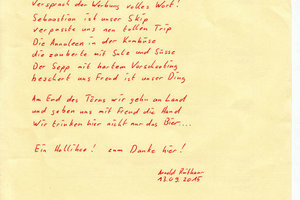 Versprach der Werbung volles Wort!
Sebastian ist unser Skip
verpasste uns nen tollen Trip
Die Annaleen in der Kombüse
die zauberte mit Salz und Süsse
Der Sepp mit hartem Vorschooting
beschert uns Freud ist unser Ding
Am End des Törns wir gehn an Land
und geben uns mit Freud die Hand
Wir trinken hier nicht nur das Bier...
Ein Hollihee! zum Danke hier!
Arnold
13.09.2015